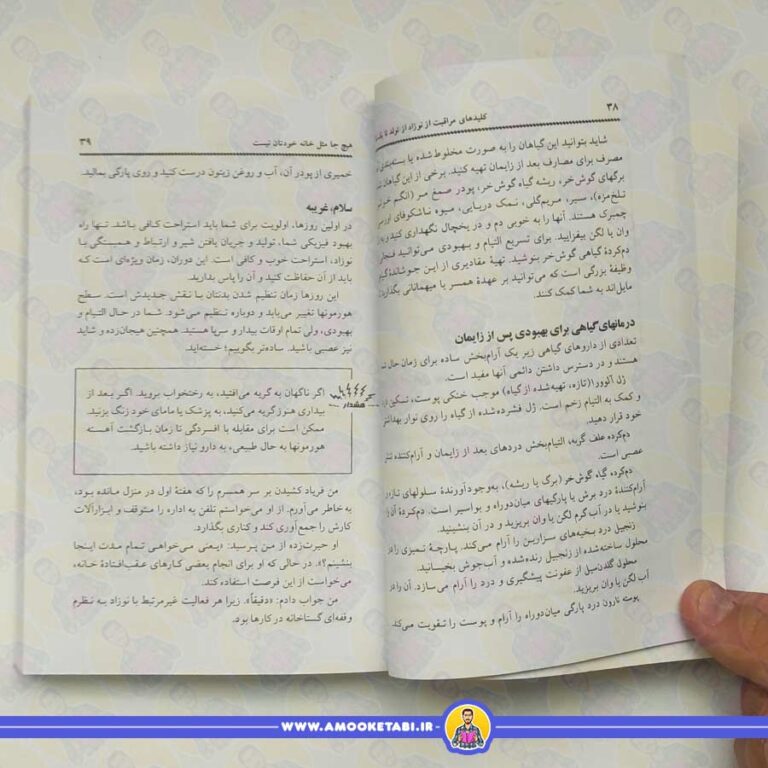 ۳۸
کلیدهای مراقبت از نوزاد از تولد تا
شاید بتوانید این گیاهان را به صورت مخلوط شده یا بسته‌بندی
مصرف برای مصارف بعد از زایمان تهیه کنید. برخی از این گیاهان
برگهای گوش‌خر، ریشه گیاه گوش‌خر، پودر صمغ مر (انگم
تلخ‌مزه)، سیر، مریم‌گلی، نمک دریایی، میوه ناشکوفای
چمبرک هستند. آنها را به خوبی دم و در یخچال نگهداری کنید و
وان یا لگن بیفزایید. برای تسریع التیام و بهبودی می‌توانید
دم‌کردهٔ گیاهی گوش‌خر بنوشید. تهیهٔ مقادیری از این جوشاندهٔ
وظیفهٔ بزرگی است که می‌تواند بر عهدهٔ همسر یا میهمانانی بگذارید
مایل‌اند به شما کمک کنند.
درمانهای گیاهی برای بهبودی پس از زایمان
تعدادی از داروهای گیاهی زیر یک آرام‌بخش ساده برای زمان حال
هستند و در دسترس داشتن دائمی آنها مفید است.
ژل آلوورا (تازه، تهیه‌شده از گیاه) موجب خنکی پوست، تسکین
و کمک به التیام زخم است. ژل فشرده‌شده از گیاه را روی نوار
خود قرار دهید.
دم‌کرده علف گربه، التیام‌بخش دردهای بعد از زایمان و آرام‌کننده
عصبی است.
دم‌کرده گیاه گوش‌خر (برگ یا ریشه)، به‌وجودآورندهٔ سلولهای
آرام‌کنندهٔ درد برش یا پارگیهای میان‌دوراه و بواسیر است. دم‌کردهٔ آن
بنوشید یا در آب گرم لگن یا وان بریزید و در آن بنشینید.
زنجبیل درد بخیه‌های سزارین را آرام می‌کند. پارچهٔ تمیزی را
محلول ساخته‌شده از زنجبیل رنده‌شده و آب‌جوش بخیسانید.
محلول گلدن‌سیل از عفونت پیشگیری و درد را آرام می‌سازد. آن را
آب لگن یا وان بریزید.
پوسته نارون درد پارگی میان‌دوراه را آرام و پوست را تقویت می‌کند
هیچ جا مثل خانه خودتان نیست
۳۹
خمیری از پودر آن، آب و روغن زیتون درست کنید و روی پارگی بمالید.
سلام، غریبه
در اولین روزها، اولویت برای شما باید استراحت کافی باشد. تنها راه
بهبود فیزیکی شما، تولید و جریان یافتن شیر و ارتباط و همبستگی با
نوزاد، استراحت خوب و کافی است. این دوران، زمان ویژه‌ای است که
باید از آن حفاظت کنید و آن را پاس بدارید.
این روزها زمان تنظیم شدن بدنتان با نقش جدیدش است. سطح
هورمونها تغییر می‌یابد و دوباره تنظیم می‌شود. شما در حال التیام و
بهبودی، ولی تمام اوقات بیدار و سرپا هستید. همچنین هیجان‌زده و شاید
نیز عصبی باشید. ساده‌تر بگوییم؛ خسته‌اید.
هشدار
اگر ناگهان به گریه می‌افتید، به رختخواب بروید. اگر بعد از
بیداری هنوز گریه می‌کنید، به پزشک یا مامای خود زنگ بزنید.
ممکن است برای مقابله با افسردگی تا زمان بازگشت آهسته
هورمونها به حال طبیعی، به دارو نیاز داشته باشید.
من فریاد کشیدن بر سر همسرم را که هفتهٔ اول در منزل مانده بود،
به خاطر می‌آورم. از او می‌خواستم تلفن به اداره را متوقف و ابزارآلات
کارش را جمع‌آوری کند و کناری بگذارد.
او حیرت‌زده از من پرسید: «یعنی می‌خواهی تمام مدت اینجا
بنشینم؟». در حالی که او برای انجام بعضی کارهای عقب‌افتادهٔ خانه،
می‌خواست از این فرصت استفاده کند.
من جواب دادم: «دقیقاً». زیرا هر فعالیت غیرمرتبط با نوزاد به نظرم
وقفه‌ای گستاخانه در کارها بود.
WWW.AMOOKETABI.IR